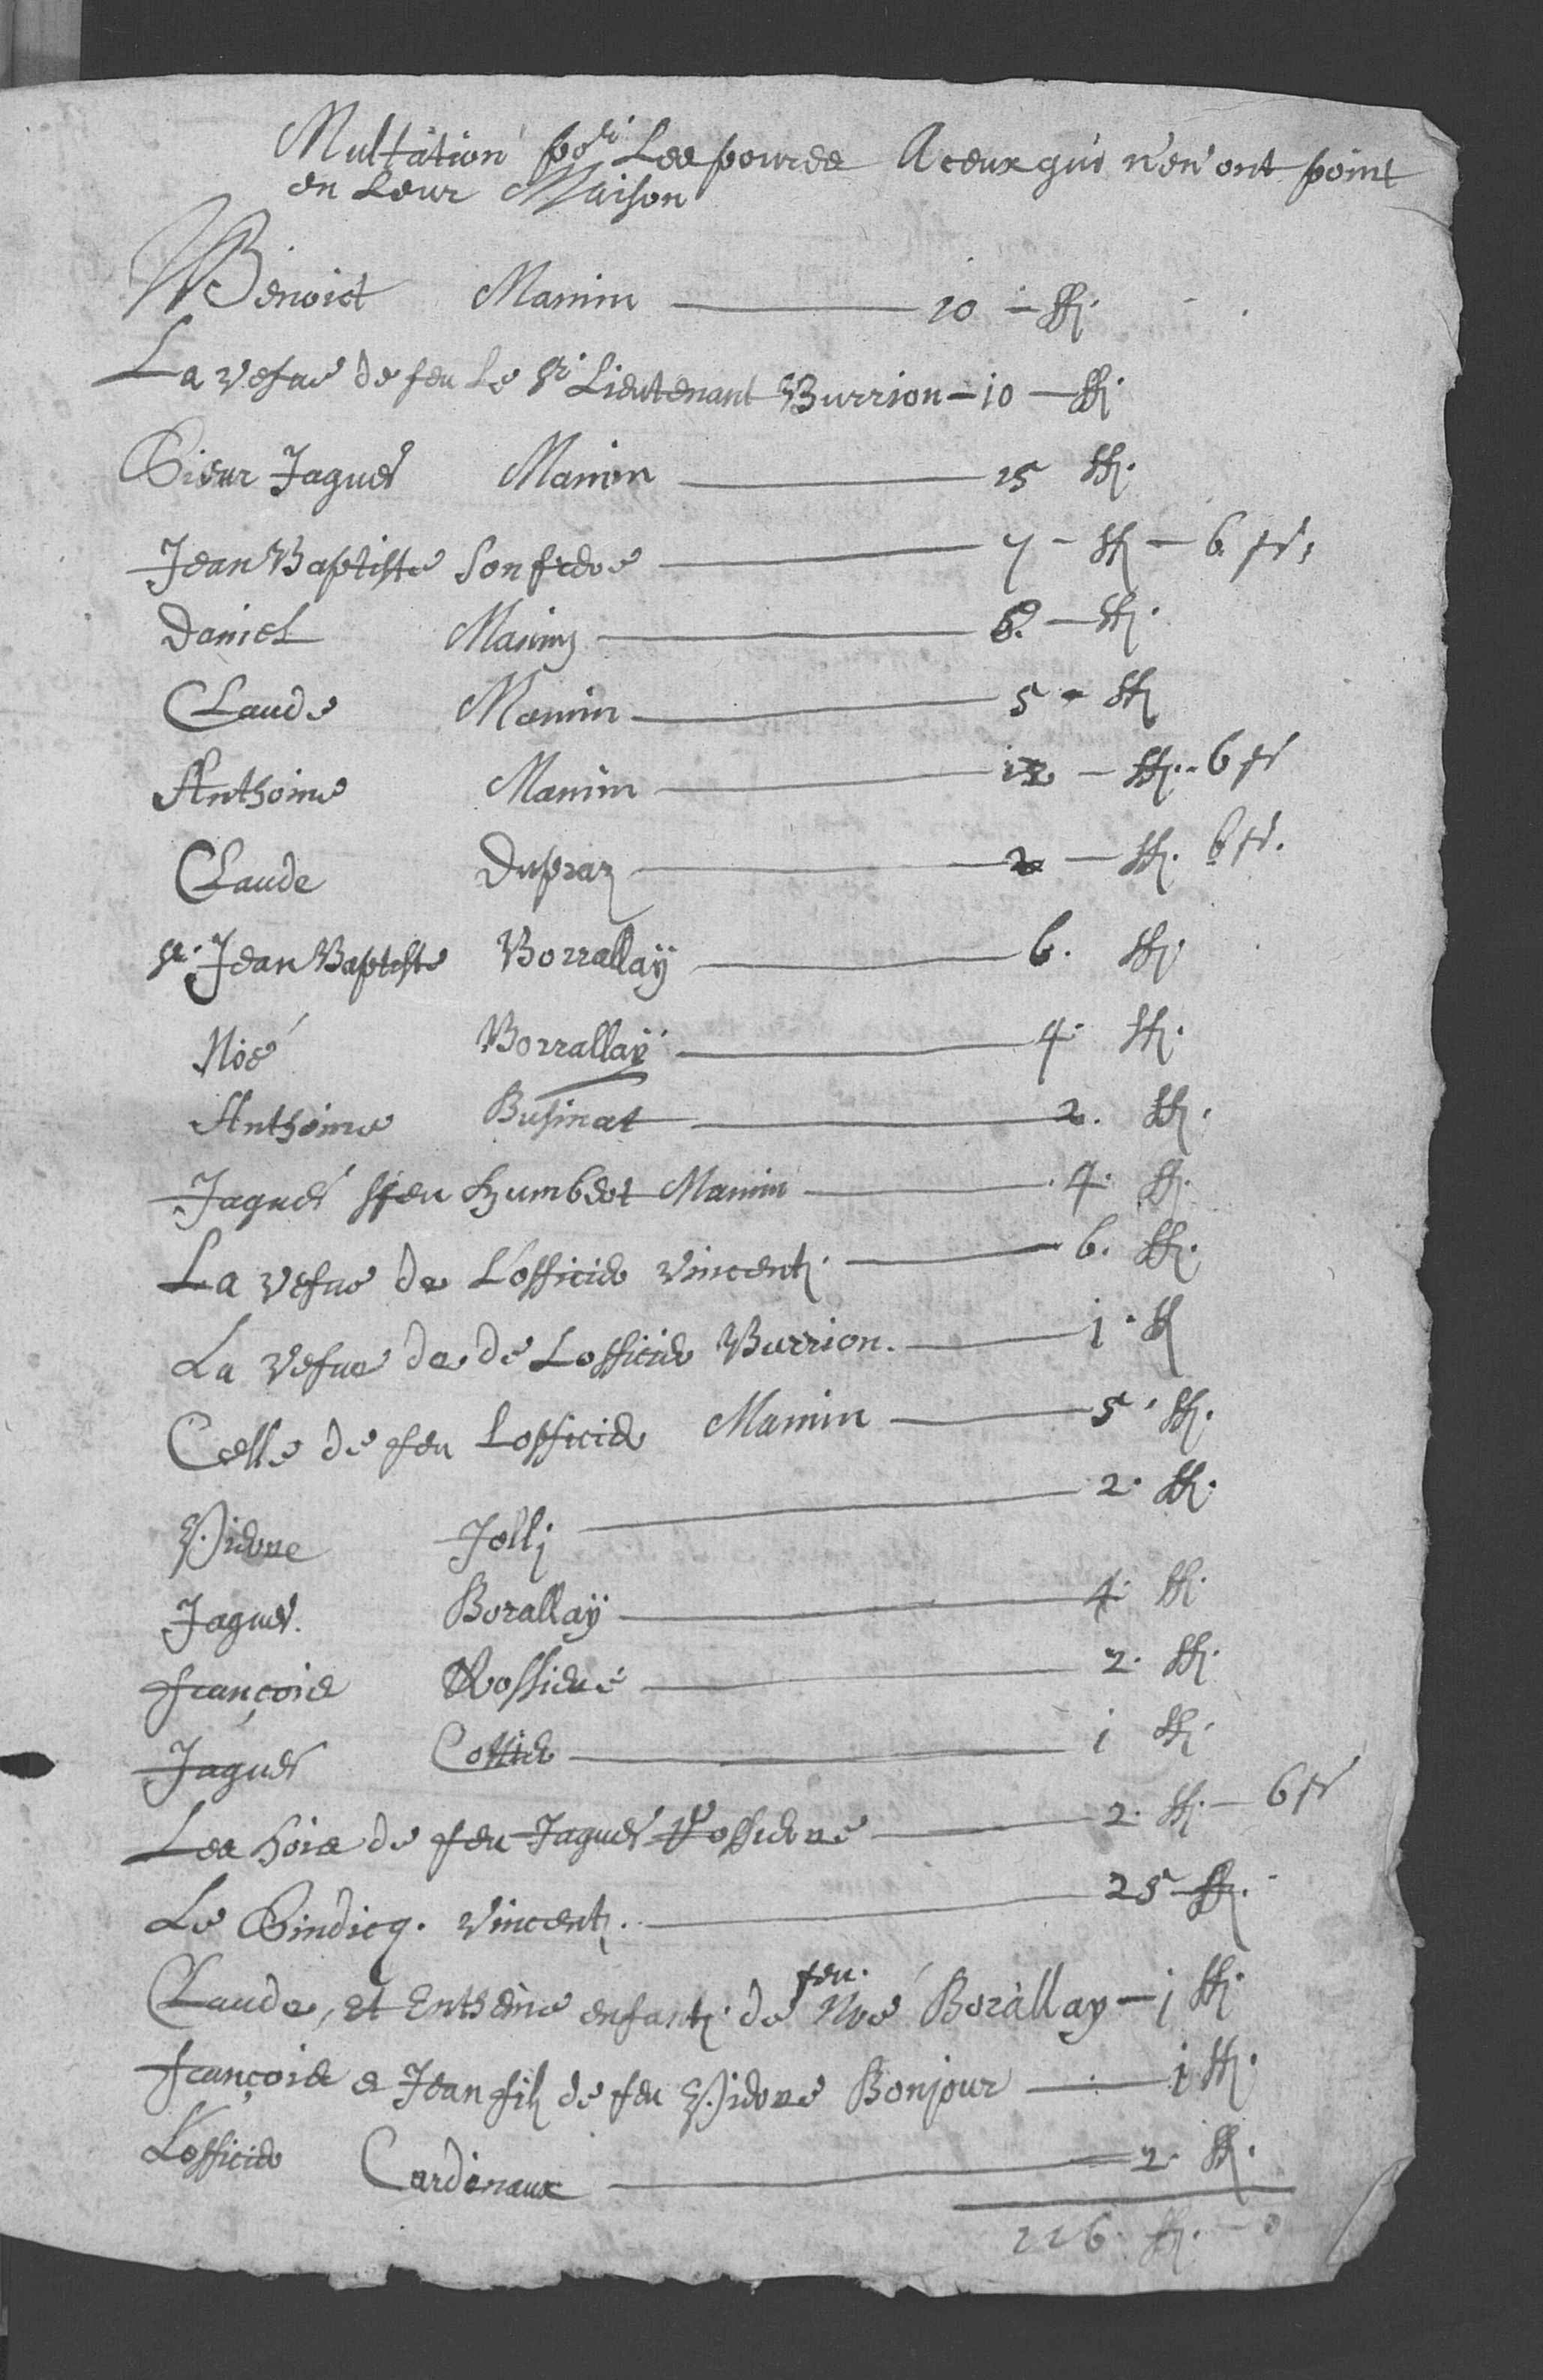 Multation po.r Les poures A ceux qui n'en ont point
en Leur Maison
Benoict Mamin — 10 — ff.
La vefue de feu Le Sr. Lieutenant Burrion — 10 — ff.
Sieur Jaques Mamin — 15 ff.
Jean Baptiste Son frere — 7 — ff — 6 ps.
Daniel Mamin — 8. — ff.
Claude Mamin — 5 - ff
Anthoine Mamin — 12 — ff. - 6 ps
Claude Dupraz — 2 — ff. 6 ps.
Sr. Jean Baptiste Borrallaÿ — 6. ff.
Noé Borrallaÿ — 4. ff.
Anthoine Businat — 2. ff.
Jaques ffeu Humbert Mamin — 4. ff.
La vefue de L'officier Vincent — 6. ff.
La vefue de de L'officier Burrion. — 1. ff
Celle de feu L'officier Mamin — 5. ff.
Pierre Jolli — 2. ff.
Jaques. Borallaÿ — 4. ff.
françois Rossiere — 2. ff.
Jaques Cottier — 1 ff.
Les hoirs de feu Jaques Rossiere — 2. ff. — 6 ps
Le Sindicq. Vincent. — 25 ff.
Claude, et Entheine enfants de feu. Noé Borallay — 1 ff.
françois e Jean filz de feu Pierre Bonjour — 1 ff.
L'officier Cardinaux — 2. ff.
116. ff. — 0